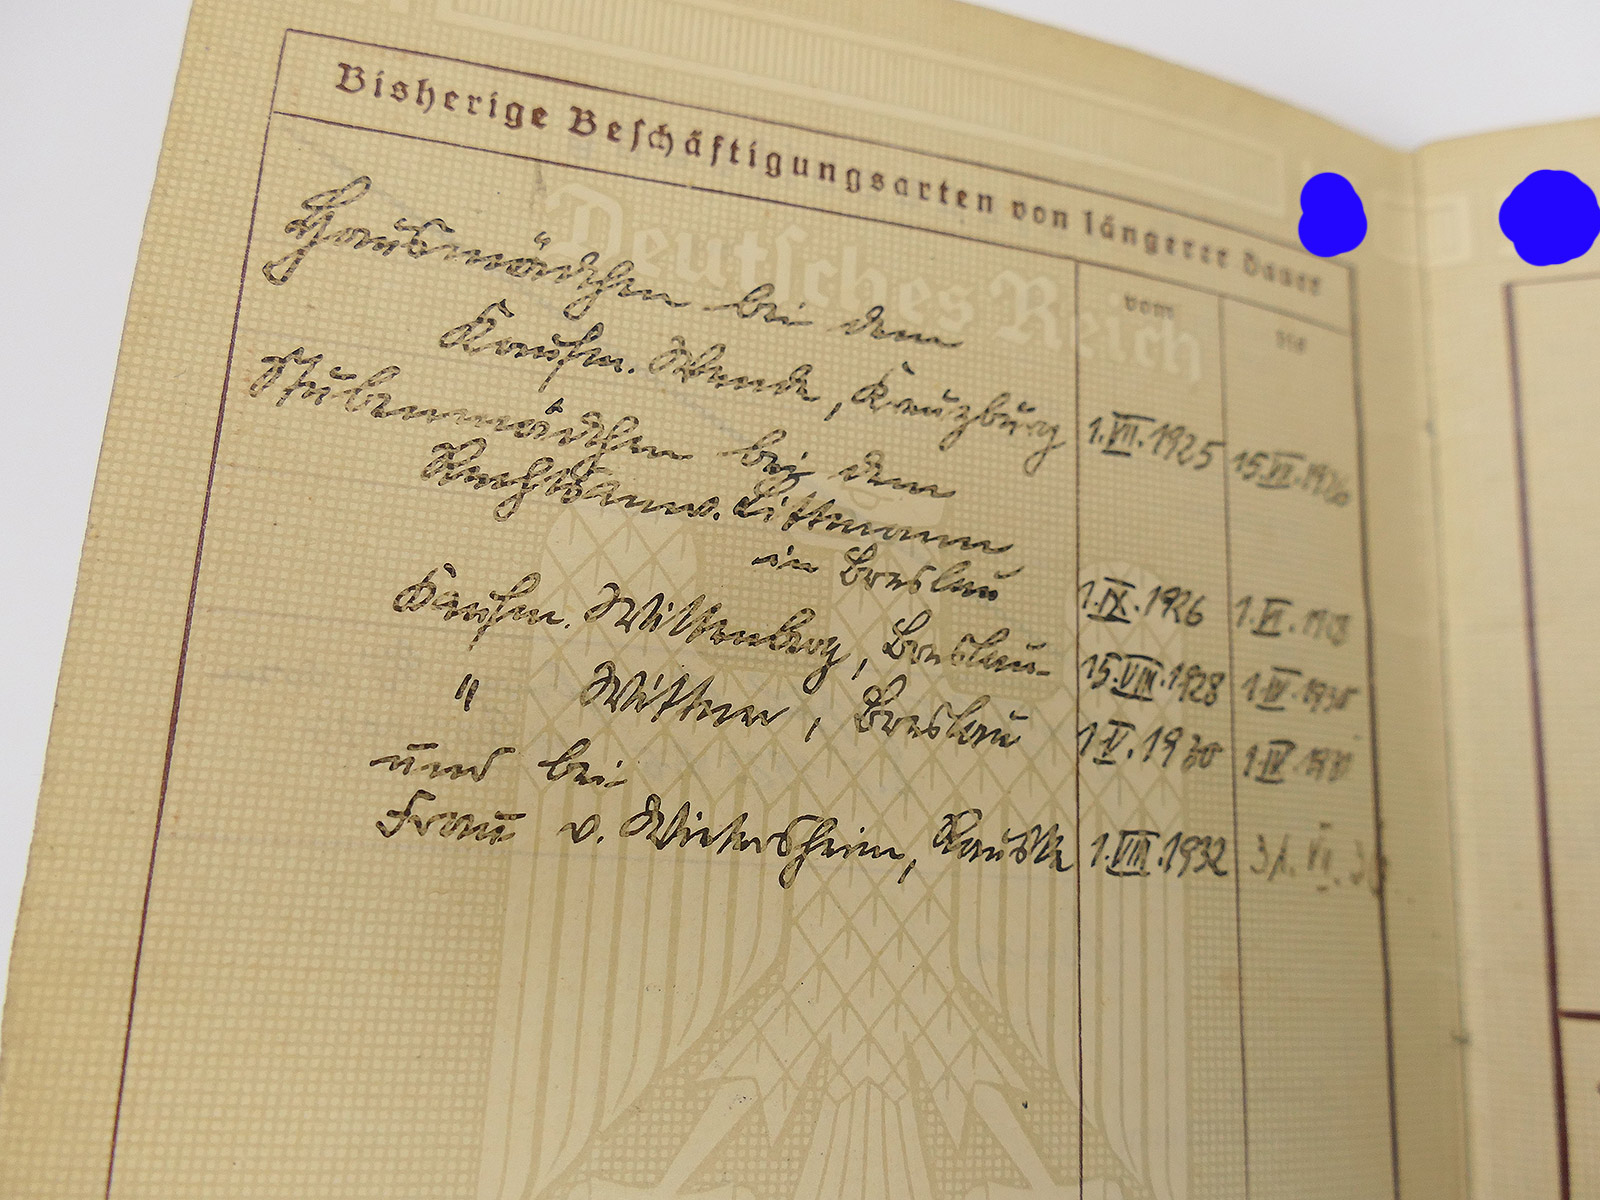 Bisherige Beschäftigungsarten von längerer Dauer
Deutsches Reich
vom bis
Hausmädchen bei dem
Kaufm. Wende, Kreuzburg 1.VII.1925 15.VII.1926
Stubenmädchen bei dem
Rechtsanw. Littmann
in Breslau 1.IX.1926 1.VI.
Kaufm. Wittenberg, Breslau 15.VIII.1928 1.IV.1930
" Wittner, Breslau 1.V.1930 1.IV.
und bei
Frau v. Wietersheim, 1.VIII.1932 31.